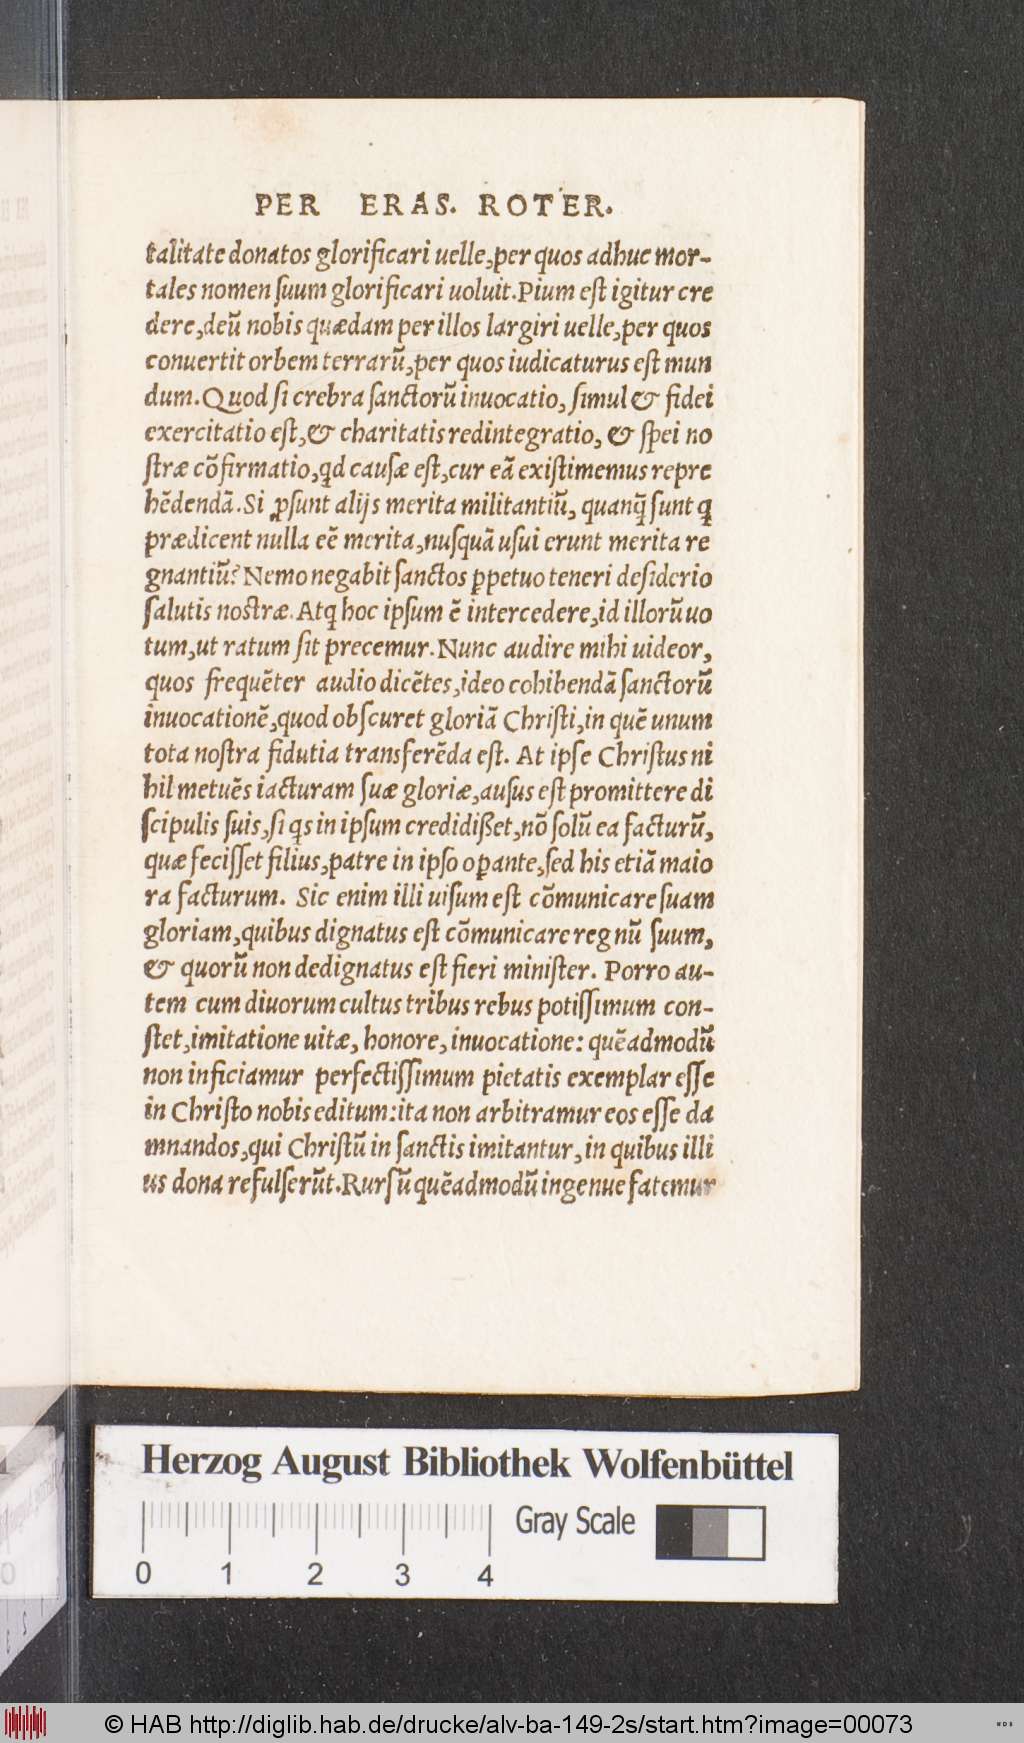 PER ERAS. ROTER.
talitate donatos glorificari uelle,per quos adhuc mor-
tales nomen ſuum glorificari uoluit.Pium eſt igitur cre
dere,deũ nobis quædam per illos largiri uelle,per quos
conuertit orbem terrarũ,per quos iudicaturus eſt mun
dum.Quod ſi crebra ſanctorũ inuocatio, ſimul & fidei
exercitatio eſt,& charitatis redintegratio, & ſpei no
ſtræ cõfirmatio,qd cauſæ eſt,cur eã exiſtimemus repre
hẽdendã.Si ꝓſunt alijs merita militantiũ, quanq̃ ſunt q
prædicent nulla eẽ merita,nuſquã uſui erunt merita re
gnantiũ? Nemo negabit ſanctos ꝑpetuo teneri deſiderio
ſalutis noſtræ. Atq hoc ipſum ẽ intercedere,id illorũ uo
tum,ut ratum ſit precemur.Nunc audire mihi uideor,
quos frequẽter audio dicẽtes,ideo cohibendã ſanctorũ
inuocationẽ,quod obſcuret gloriã Chriſti,in quẽ unum
tota noſtra fidutia transferẽda eſt. At ipſe Chriſtus ni
hil metuẽs iacturam ſuæ gloriæ,auſus eſt promittere di
ſcipulis ſuis,ſi qs in ipſum credidißet,nõ ſolũ ea facturũ,
quæ feciſſet filius,patre in ipſo oꝑante,ſed his etiã maio
ra facturum. Sic enim illi uiſum eſt cõmunicare ſuam
gloriam,quibus dignatus eſt cõmunicare regnũ ſuum,
& quorũ non dedignatus eſt fieri miniſter. Porro au-
tem cum diuorum cultus tribus rebus potiſſimum con-
ſtet,imitatione uitæ, honore, inuocatione: quẽadmodũ
non inficiamur perfectiſſimum pietatis exemplar eſſe
in Chriſto nobis editum:ita non arbitramur eos eſſe da
mnandos,qui Chriſtũ in ſanctis imitantur, in quibus illi
us dona refulſerũt.Rurſũ quẽadmodũ ingenue fatemur
Herzog August Bibliothek Wolfenbüttel
Gray Scale
0 1 2 3 4
© HAB http://diglib.hab.de/drucke/alv-ba-149-2s/start.htm?image=00073